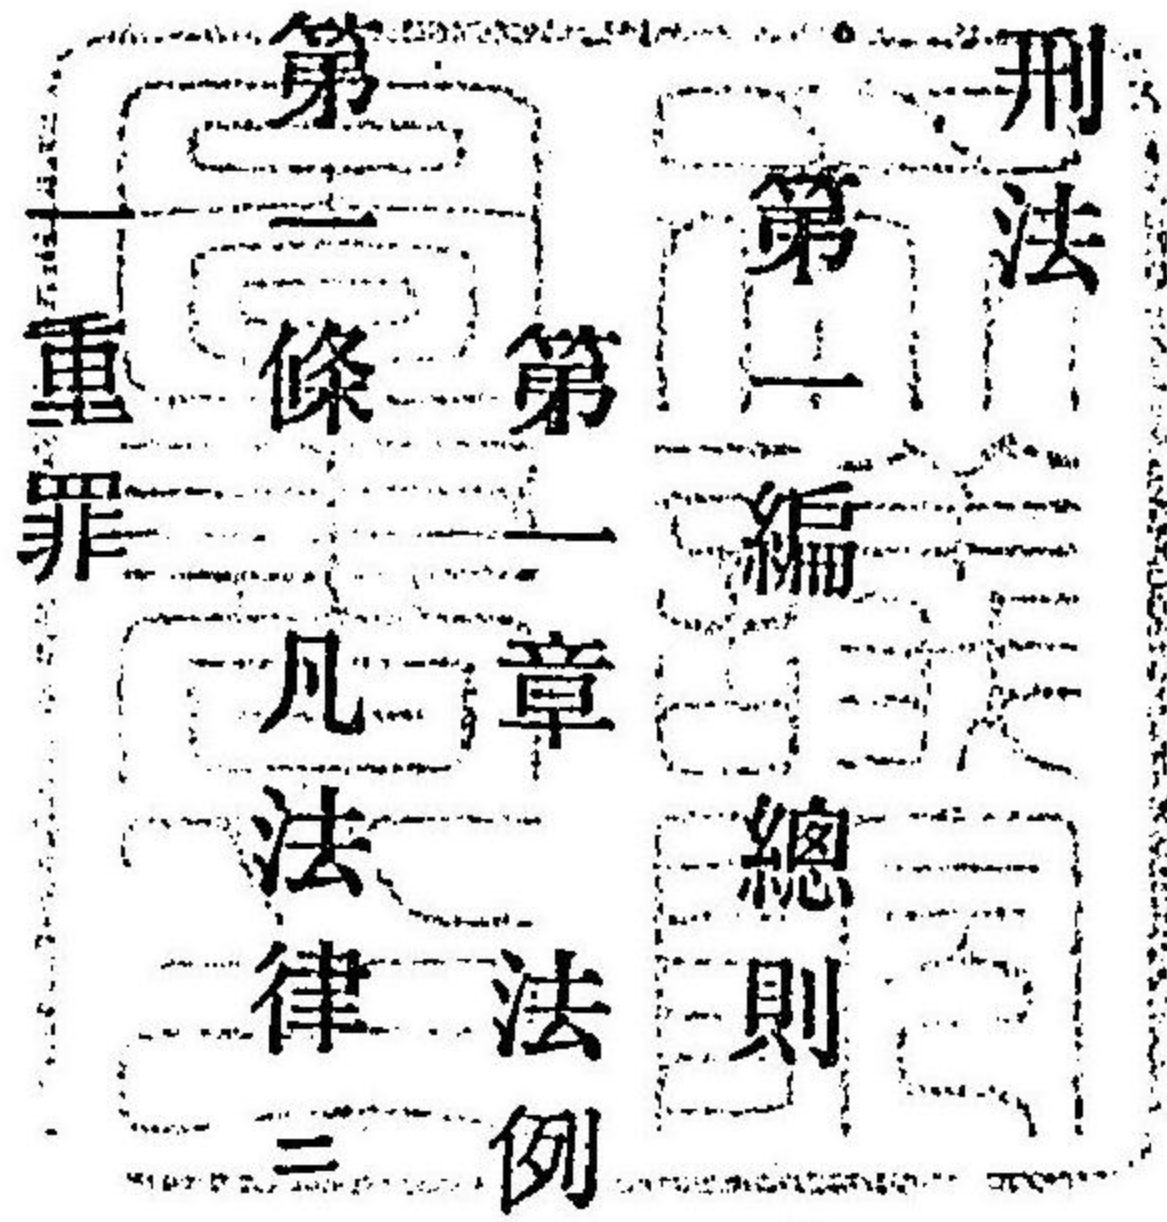 刑法
第一編 總則
第一章 法例
第一條 凡法律ニ
一 重罪